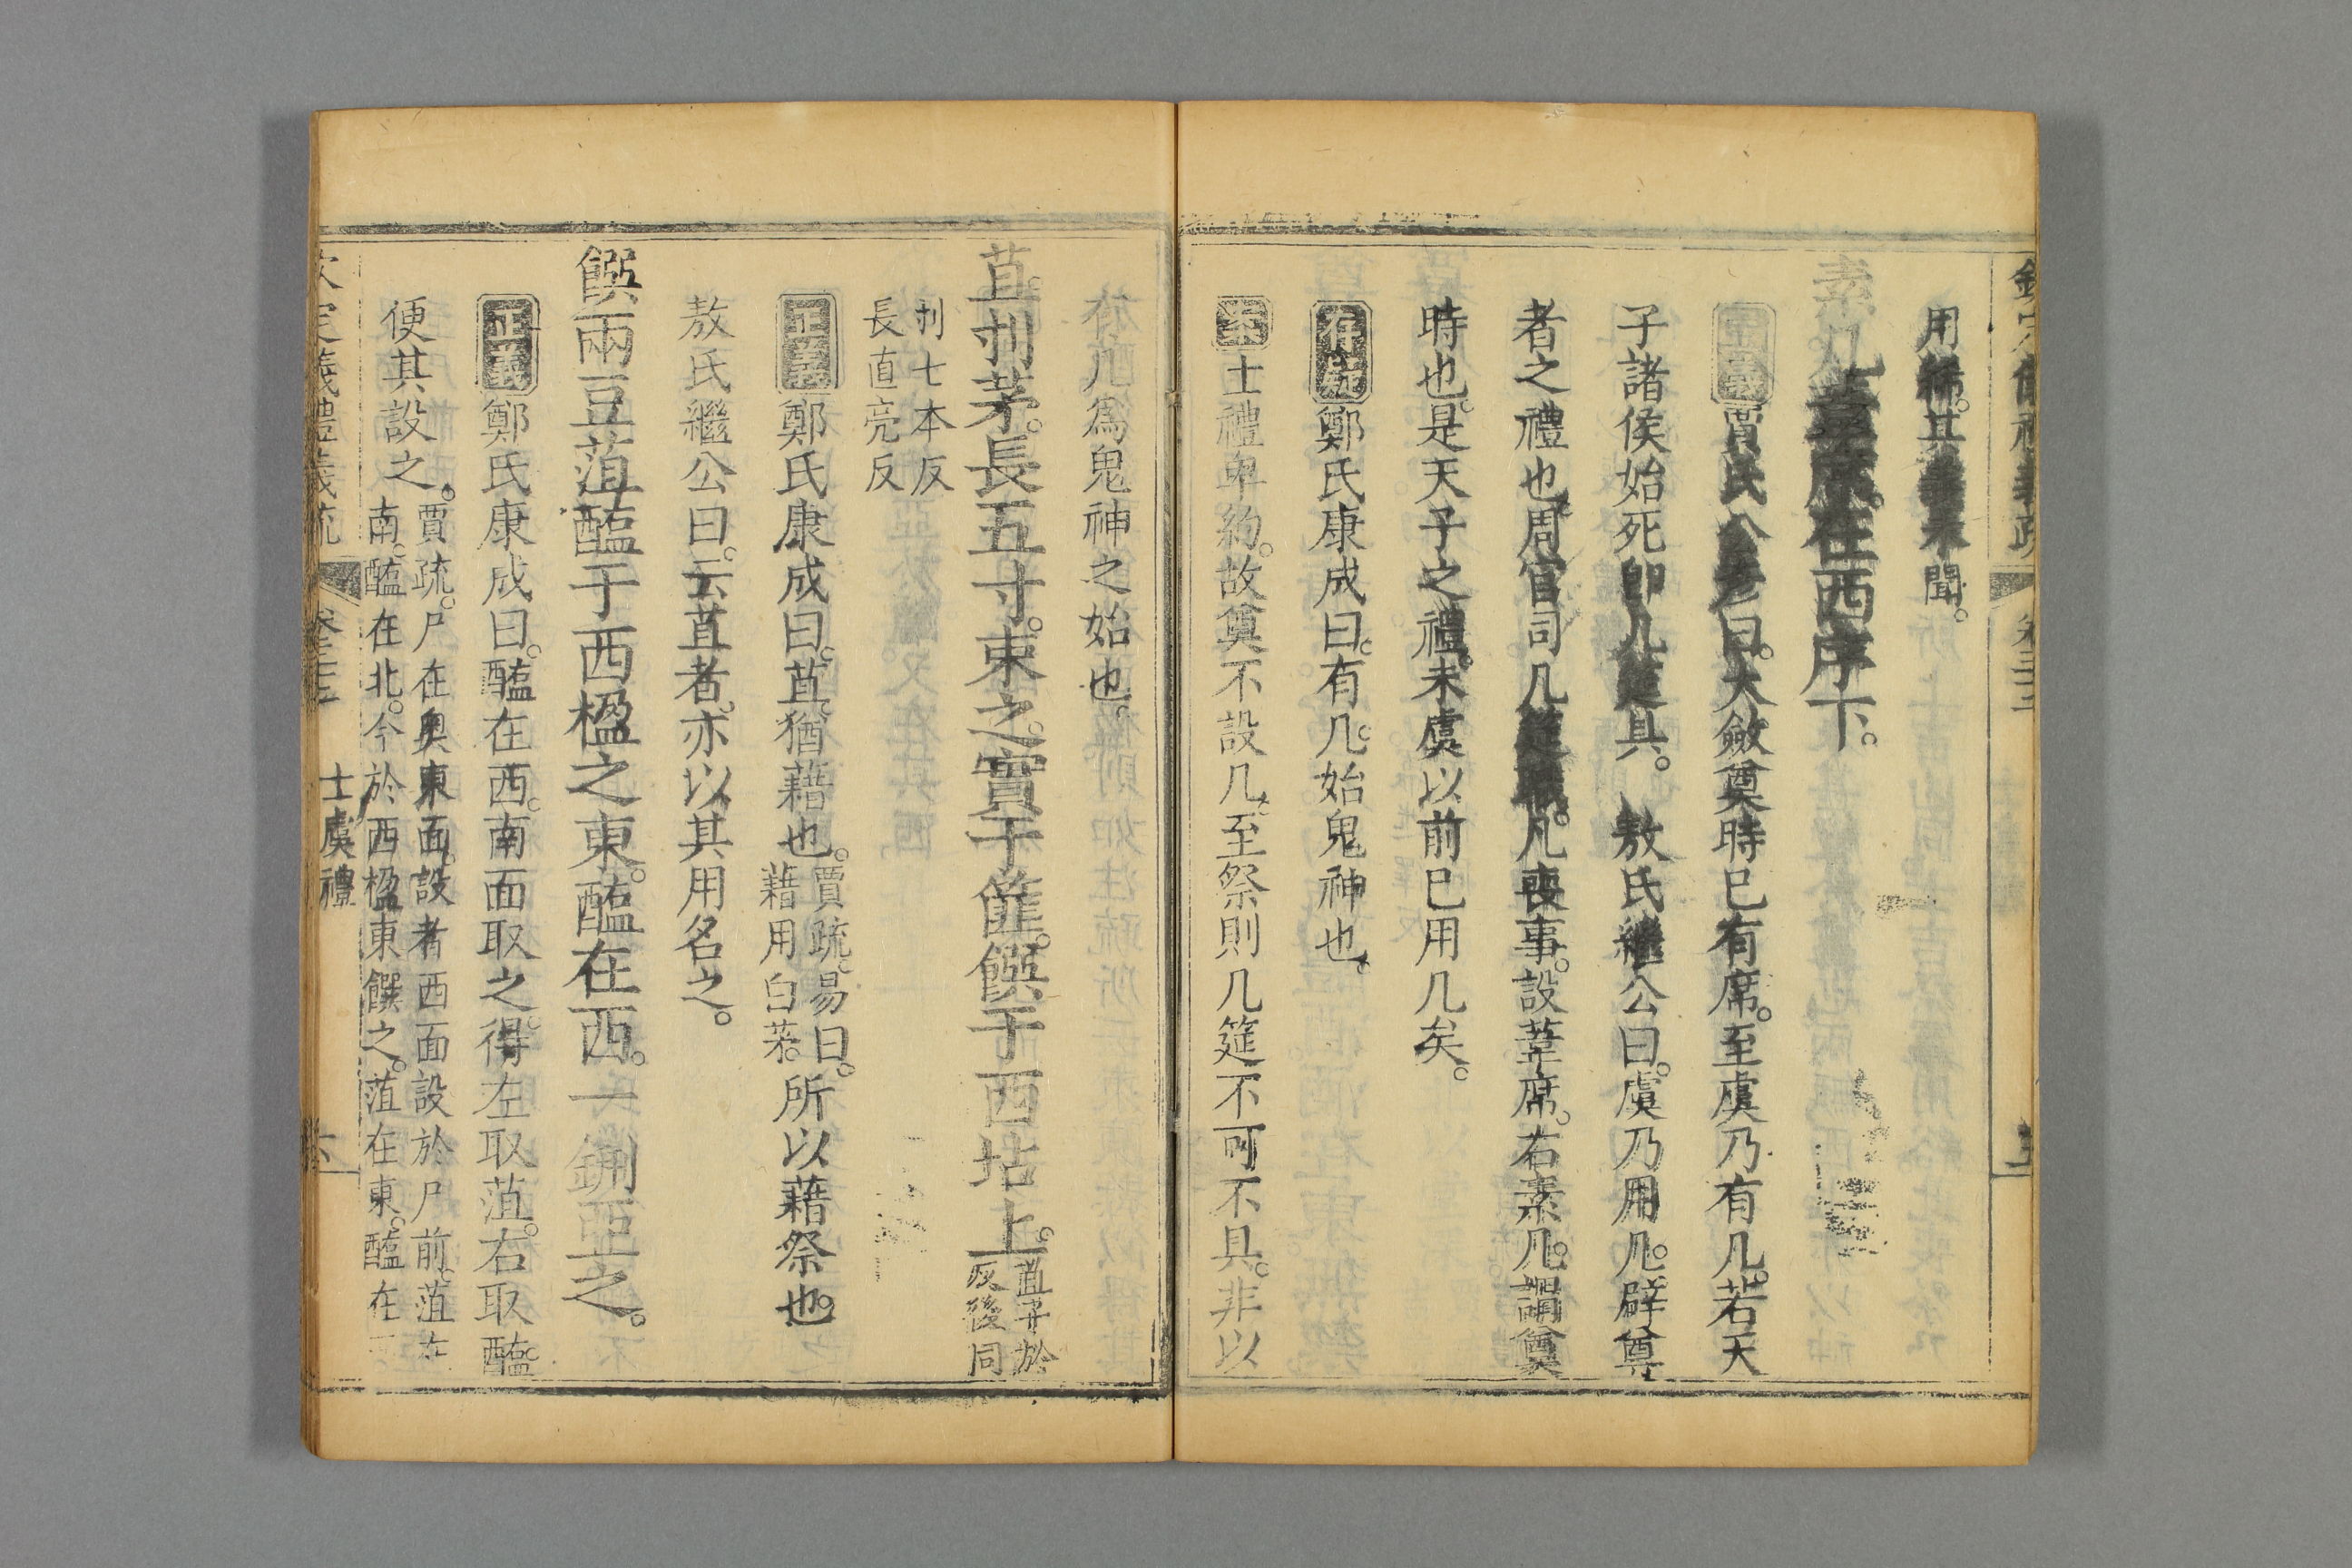 用絺其義未聞
素几葦席在西序下
正義賈氏公彥曰大斂奠時已有席至虞乃有几若天
子諸侯始死卽几筵具敖氏繼公曰虞乃用几辟尊
者之禮也周官司几筵職凡喪事設葦席右素几謂奠
時也是天子之禮未虞以前已用几矣
存疑鄭氏康成曰有几始鬼神也
案士禮卑約故奠不設几至祭則几筵不可不具非以
有几爲鬼神之始也
苴刌茅長五寸束之實于篚饌于西坫上苴子於
反後同
刌七本反
長直亮反
正義鄭氏康成曰苴猶藉也賈疏易曰
藉用白茅所以藉祭也
敖氏繼公曰云苴者亦以其用名之
饌兩豆菹醢于西楹之東醢在西一鉶亞之
正義鄭氏康成曰醢在西南面取之得左取菹右取醢
便其設之賈疏尸在奥東面設者西面設於尸前菹在
南醢在北今於西楹東饌之菹在東醢在
欽定儀禮義疏 士虞禮